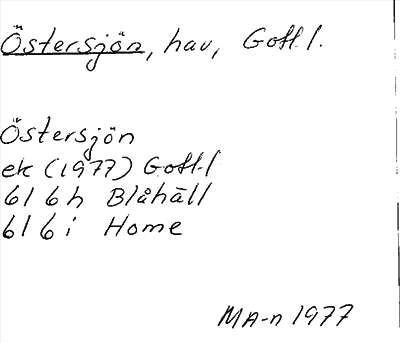 Östersjön, hav, Gotl. l.
Östersjön
ek (1977) Gotl. l
6I6h Blåhäll
6I6i Home
MA-n 1977